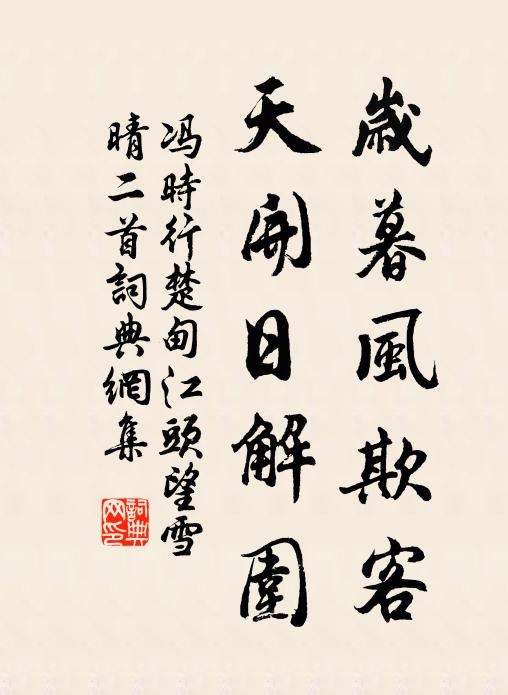 歲暮風欺客
天開日解圍
冯時行楚甸江頭望雪
晴二首詞典網集
詞典
网印